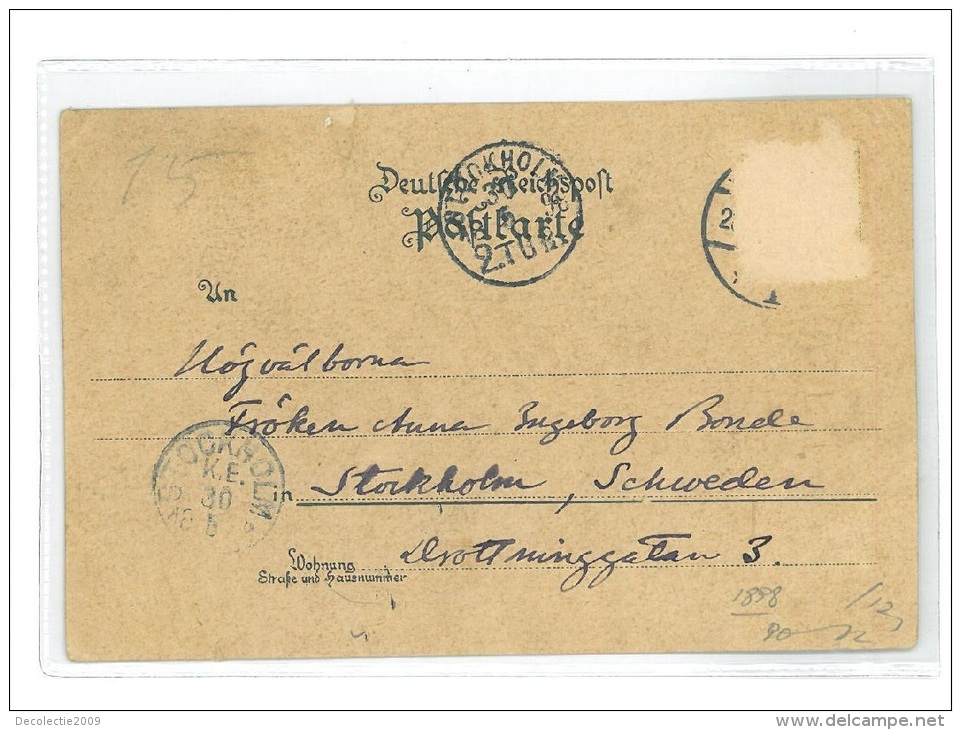 15
Deutsche Reichspost
Postkarte
STOCKHOLM
30
5
98
2.TUR
2
1
An
Högvälborna
Fröken Anna Ingeborg Bonde
in Stockholm, Schweden
Drottninggatan 3.
STOCKHOLM
K.E.
30
5
Wohnung
Straße und Hausnummer
1898
90
/12
Decolectie2009
www.delcampe.net